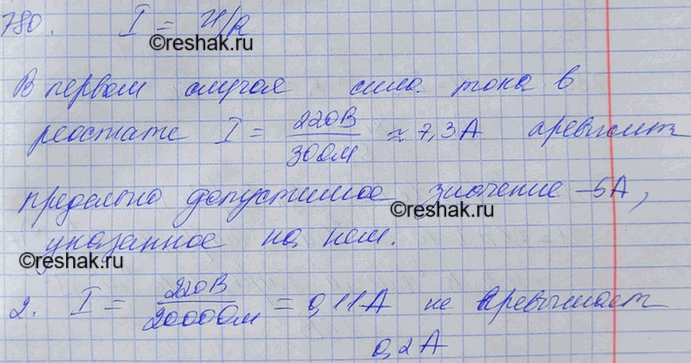 780. I = U/R
©reshak.ru
В первом случае сила тока в
реостате I = 220В/30Ом ≈ 7,3А превысит
предельно допустимое значение -5А,
©reshak.ru
указанное на нем.
©reshak.ru
2. I = 220В/2000Ом = 0,11А не превышает
©reshak.ru
0,2А